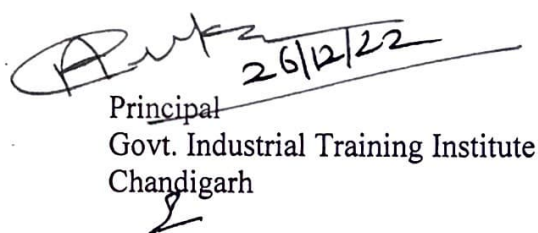 26/12/22
Principal
Govt. Industrial Training Institute
Chandigarh